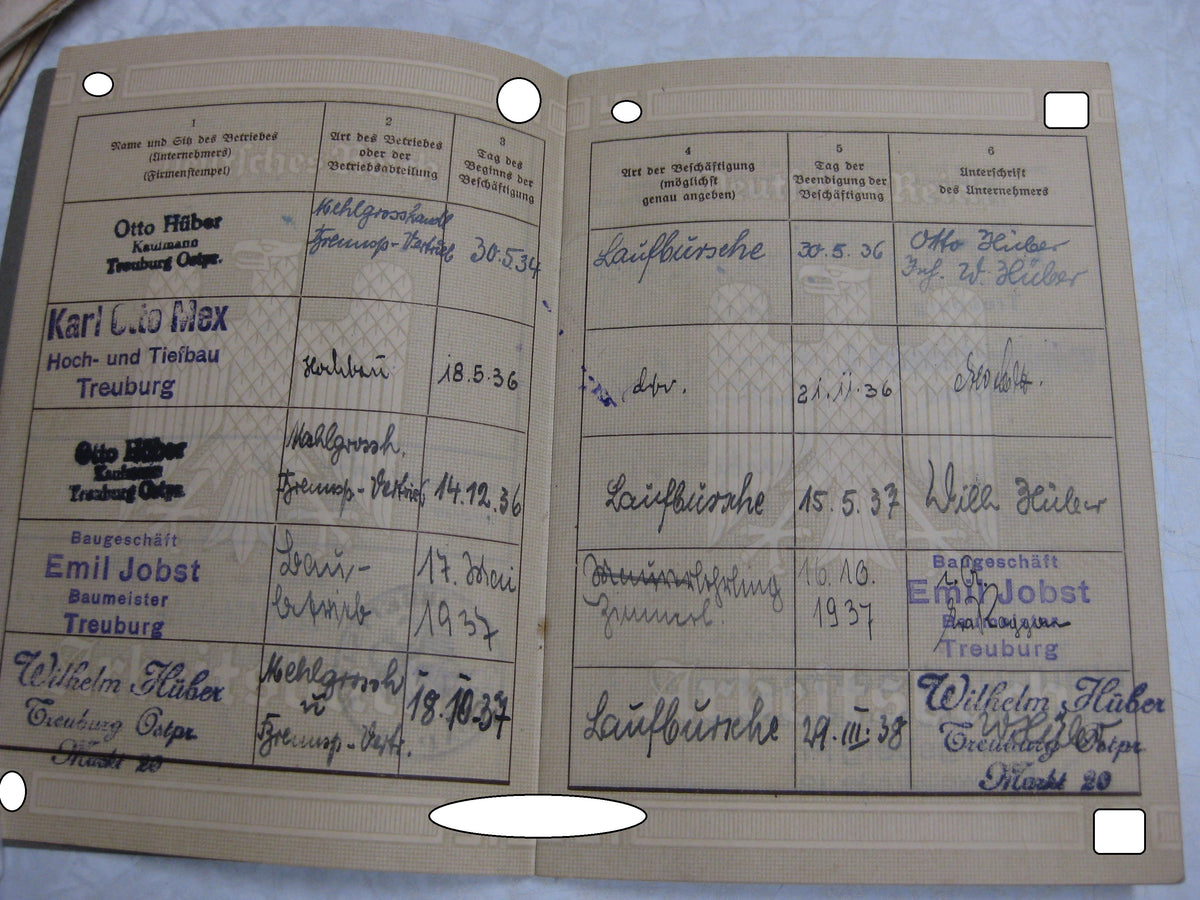 1
Name und Sitz des Betriebes
(Unternehmers)
(Firmenstempel)
2
Art des Betriebes
oder der
Betriebsabteilung
3
Tag des
Beginns der
Beschäftigung
4
Art der Beschäftigung
(möglichst
genau angeben)
5
Tag der
Beendigung der
Beschäftigung
6
Unterschrift
des Unternehmers
Otto Hüber
Kaufmann
Treuburg Ostpr.
Mehlgrosshandl
Brennsp-Vertrieb
30.5.34
Laufbursche
30.5.36
Otto Hüber
Inh. W. Hüber
Karl Otto Mex
Hoch- und Tiefbau
Treuburg
Hochbau
18.5.36
21.11.36
Otto Hüber
Kaufmann
Treuburg Ostpr.
Mehlgrossh.
Brennsp-Vertrieb
14.12.36
Laufbursche
15.5.37
Willh Hüber
Baugeschäft
Emil Jobst
Baumeister
Treuburg
Bau-
betrieb
17. Mai
1937
Maurerlehrling
Zimmerl.
16.10.
1937
Baugeschäft
Emil Jobst
Baumeister
Treuburg
Wilhelm Hüber
Treuburg Ostpr
Markt 20
Mehlgrossh
u
Brennsp-Vertr.
18.10.37
Laufbursche
29.III.38
Wilhelm Hüber
Treuburg Ostpr
Markt 20